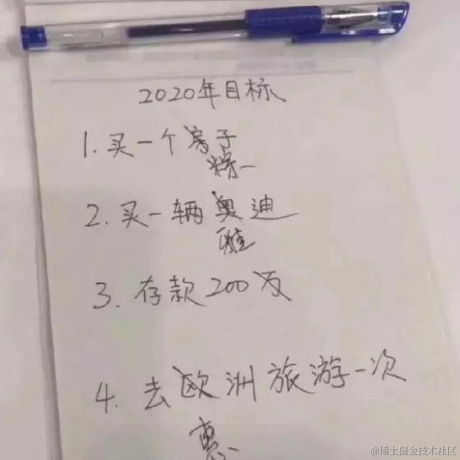 2020年目标
1. 买一个房子
粽
2. 买一辆奥迪
雅
3. 存款200万
4. 去欧洲旅游一次
惠
@稀土掘金技术社区